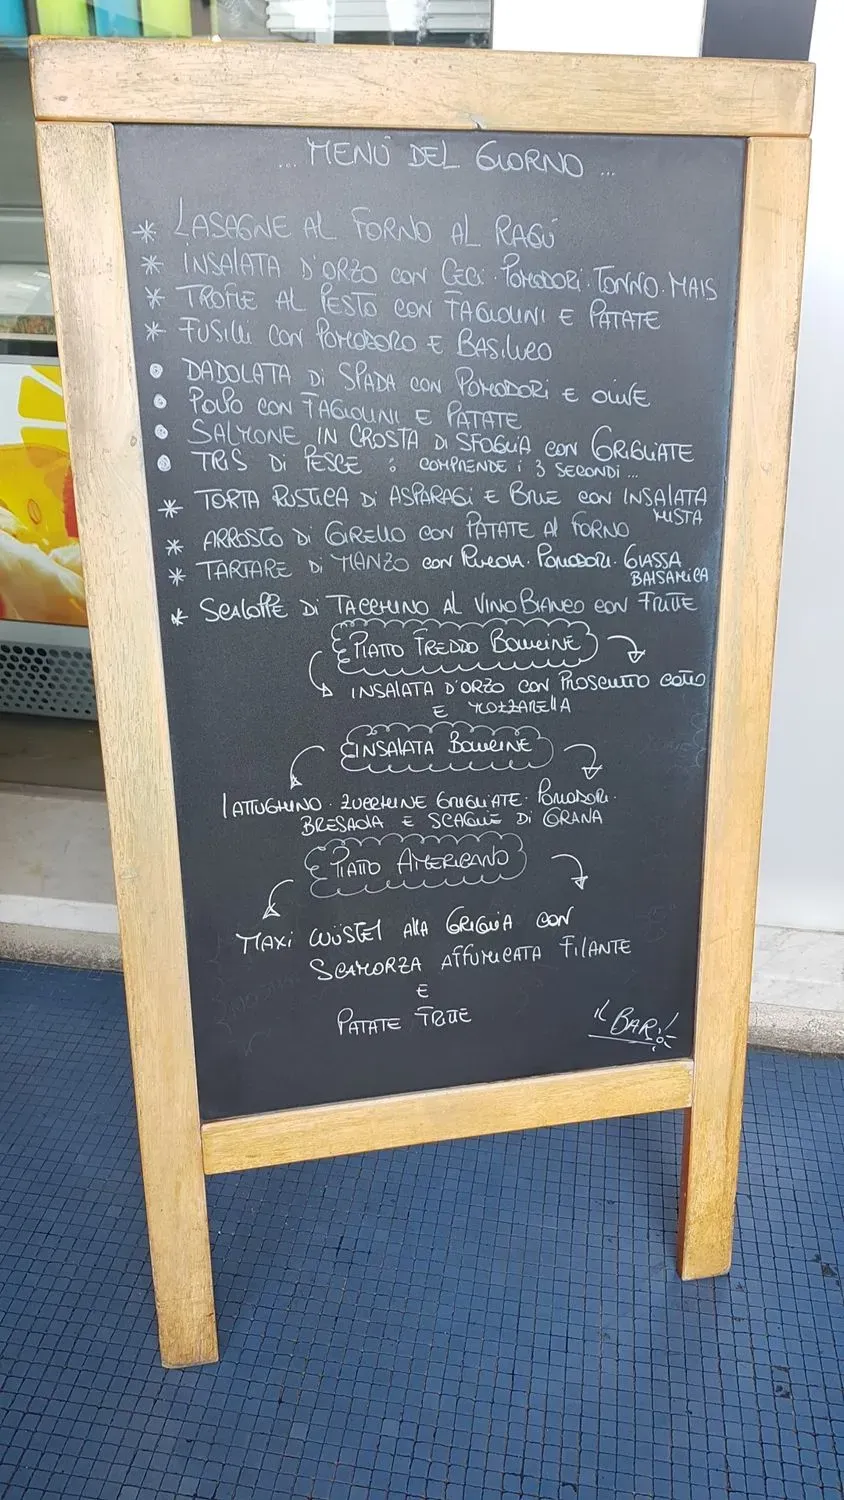 ... MENÙ DEL GIORNO ...
* LASAGNE AL FORNO AL RAGÙ
* INSALATA D'ORZO CON CECI. POMODORI. TONNO. MAIS
* TROFIE AL PESTO CON FAGIOLINI E PATATE
* FUSILLI CON POMODORO E BASILICO
• DADOLATA DI SPADA CON POMODORI E OLIVE
• POLPO CON FAGIOLINI E PATATE
• SALMONE IN CROSTA DI SFOGLIA CON GRIGLIATE
• TRIS DI PESCE : COMPRENDE I 3 SECONDI...
* TORTA RUSTICA DI ASPARAGI E BRIE CON INSALATA
MISTA
* ARROSTO DI GIRELLO CON PATATE AL FORNO
* TARTARE DI MANZO CON RUCOLA. POMODORI. GLASSA
BALSAMICA
* SCALOPPE DI TACCHINO AL VINO BIANCO CON FRITTE
PIATTO FREDDO BOLLICINE
INSALATA D'ORZO CON PROSCIUTTO COTTO
E MOZZARELLA
INSALATA BOLLICINE
LATTUGHINO. ZUCCHINE GRIGLIATE. POMODORI.
BRESAOLA E SCAGLIE DI GRANA
PIATTO AMERICANO
MAXI WÜSTEL ALLA GRIGLIA CON
SCAMORZA AFFUMICATA FILANTE
E
PATATE FRITTE
IL BAR!